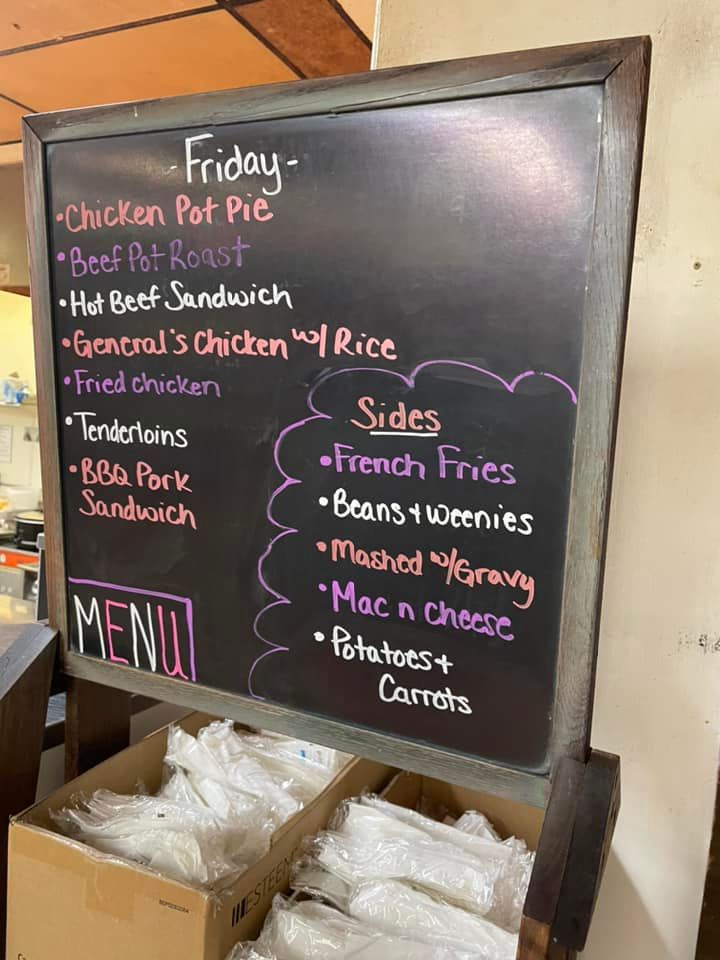 -Friday-
•Chicken Pot Pie
•Beef Pot Roast
•Hot Beef Sandwich
•General's Chicken w/ Rice
•Fried chicken
•Tenderloins
•BBQ Pork
Sandwich
MENU
Sides
•French Fries
•Beans + Weenies
•Mashed w/Gravy
•Mac n cheese
•Potatoes +
Carrots
ESTEEM